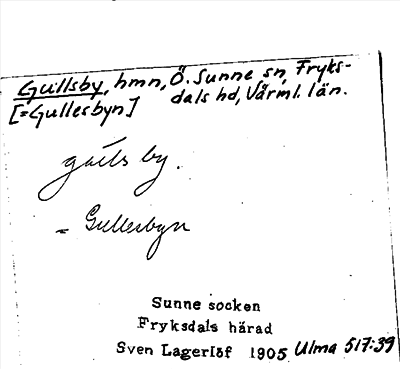 Gullsby, hmn, Ö. Sunne sn, Fryks-
[=Gullesbyn] dals hd, Värml. län.
gúls by.
= Gullesbyn
Sunne socken
Fryksdals härad
Sven Lagerlöf 1905 Ulma 517:39